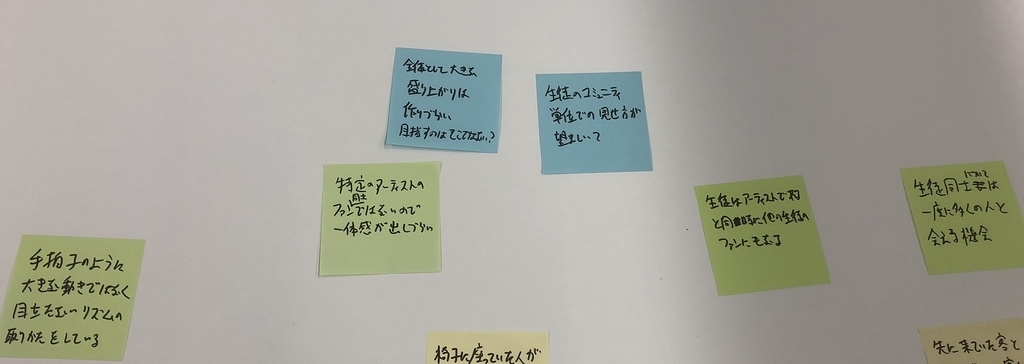 全体として大きな
盛り上がりは
作りづらい
目指すのはそこではない?
生徒のコミュニティ
単位での見せ方が
望ましいて
特定のアーティストの
ファンではないので
一体感が出しづらい
生徒はアーティストであ
と同時に他の生徒の
ファンにもなる
生徒同士にとっては
一度に多くの人と
会える機会
手拍子のように
大きな動きではなく
目立たないリズムの
取りかたをしている
椅子に座っていた人が
先に来ていた客と